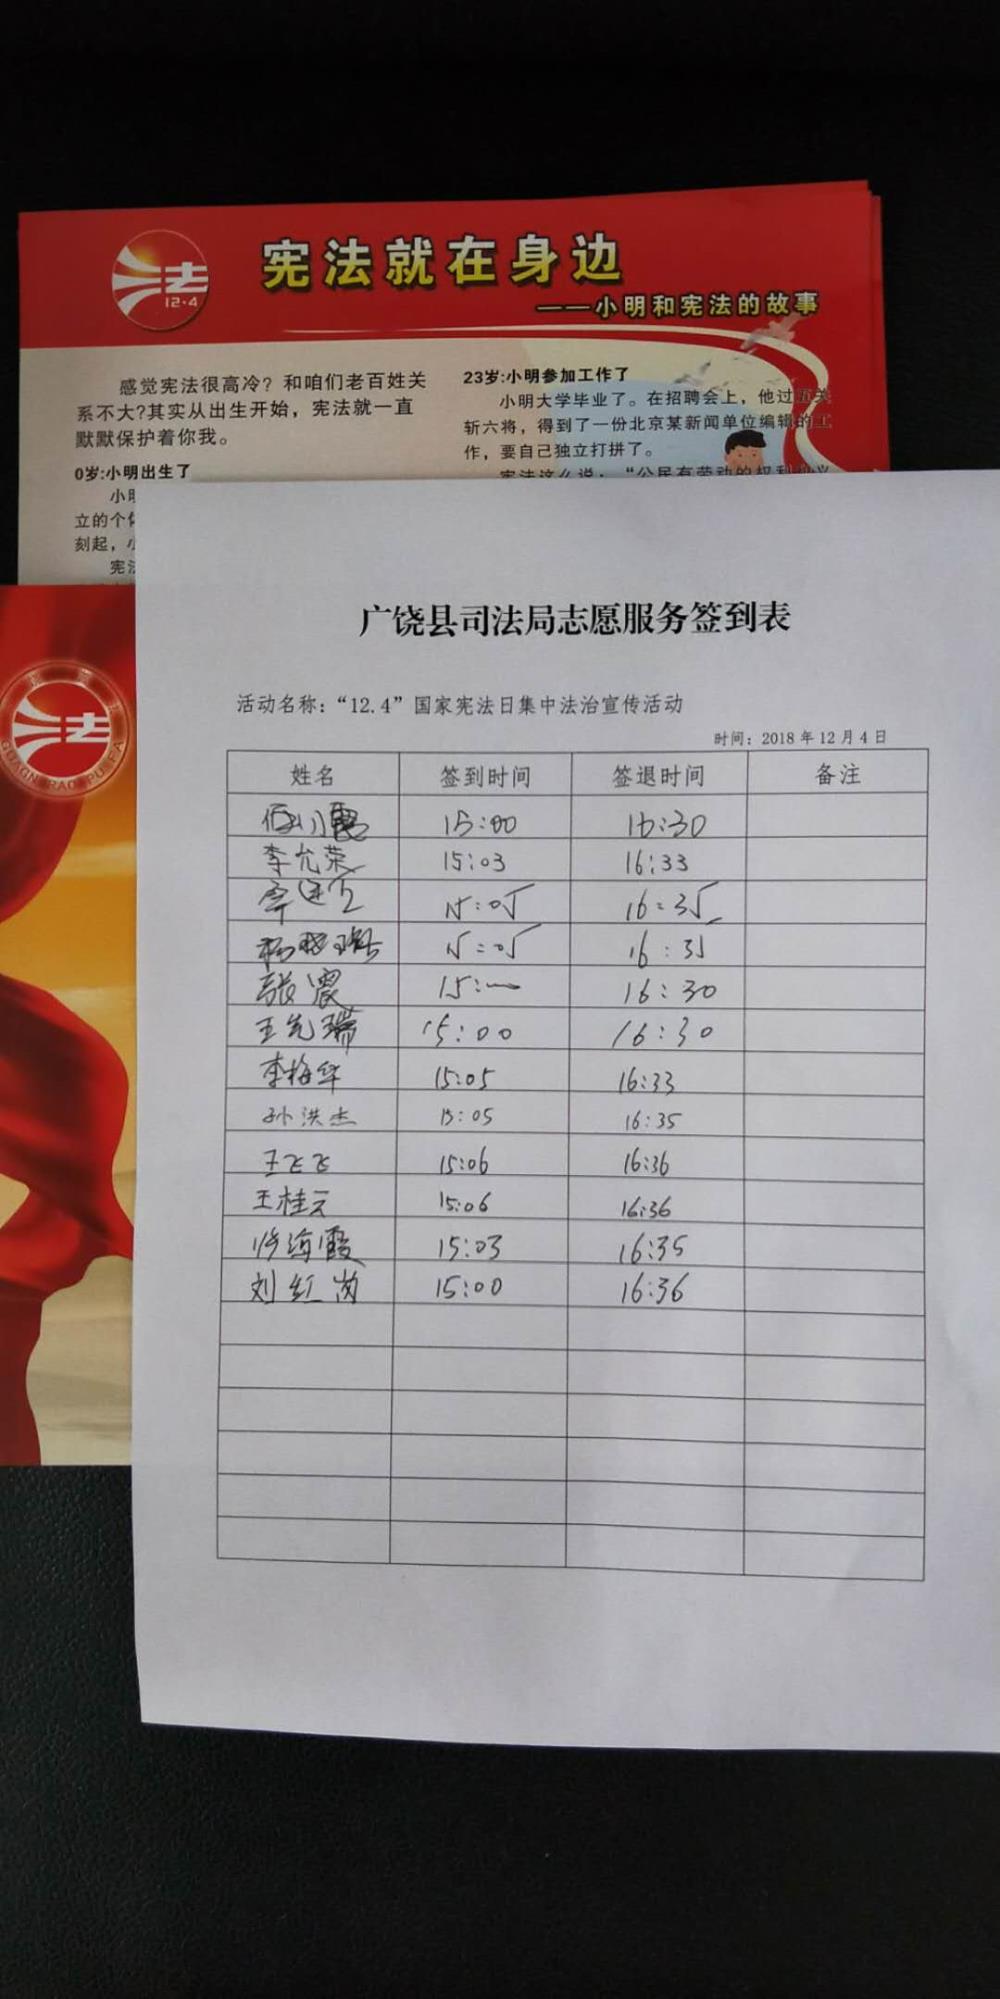 法
12·4
宪法就在身边
——小明和宪法的故事
感觉宪法很高冷？和咱们老百姓关
系不大?其实从出生开始，宪法就一直
默默保护着你我。
0岁:小明出生了
小明
立的个
刻起，小
宪法
23岁:小明参加工作了
小明大学毕业了。在招聘会上，他过五关
斩六将，得到了一份北京某新闻单位编辑的工
作，要自己独立打拼了。
宪法这么说：“公民有劳动的权利
法
广饶县司法局志愿服务签到表
活动名称：“12.4”国家宪法日集中法治宣传活动
时间：2018年12月4日
姓名 签到时间 签退时间 备注
15:00 16:30
李光荣 15:03 16:33
15:05 16:35
15:05 16:35
张震 15: 16:30
王先瑞 15:00 16:30
李梅华 15:05 16:33
孙洪杰 15:05 16:35
王飞飞 15:06 16:36
王桂云 15:06 16:36
海霞 15:03 16:35
刘红 15:00 16:36